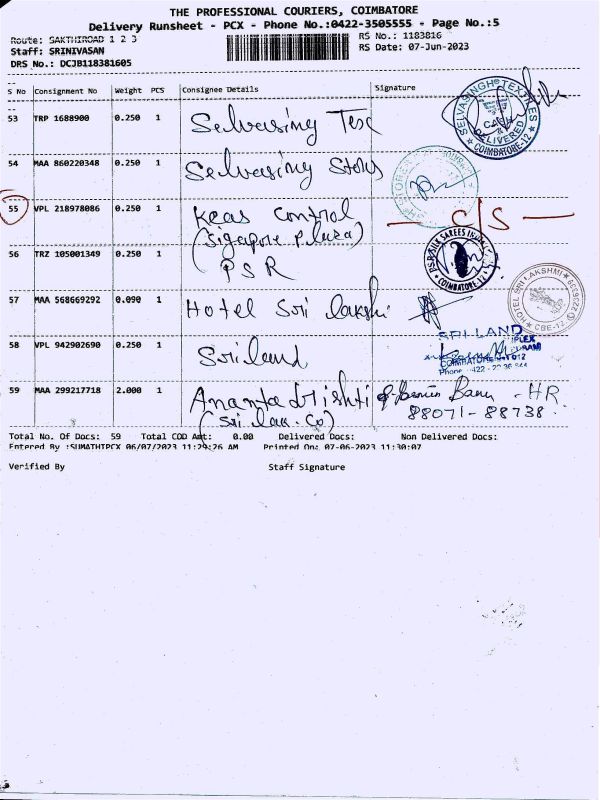 THE PROFESSIONAL COURIERS, COIMBATORE
Delivery Runsheet - PCX - Phone No.:0422-3505555 - Page No.:5
Route: SAKTHIROAD 1 2 3
RS No.: 1183816
Staff: SRINIVASAN
RS Date: 07-Jun-2023
DRS No.: DCJB118381605
S No Consignment No Weight PCS Consignee Details Signature
53 TRP 1688900 0.250 1 Selvasing Tex
SELVASINGH TEXTILES
DELIVERED
COIMBATORE-12
54 MAA 860220348 0.250 1 Selvasing Stores
55 VPL 218978086 0.250 1 Keas Control - C/S -
(Sigapore Plaza)
56 TRZ 105001349 0.250 1 PSR
COIMBATORE-12
57 MAA 568669292 0.090 1 Hotel Sri lakshi
HOTEL SRI LAKSHMI
CBE-12
58 VPL 942902690 0.250 1 Sriland
SRI LAND
59 MAA 299217718 2.000 1 Ananta drishti - HR
(Sri lak. Co) 88071-88738
Total No. Of Docs: 59 Total COD Amt: 0.00 Delivered Docs: Non Delivered Docs:
Entered By :SUMATHIPCX 06/07/2023 11:29:26 AM Printed On: 07-06-2023 11:30:07
Verified By Staff Signature